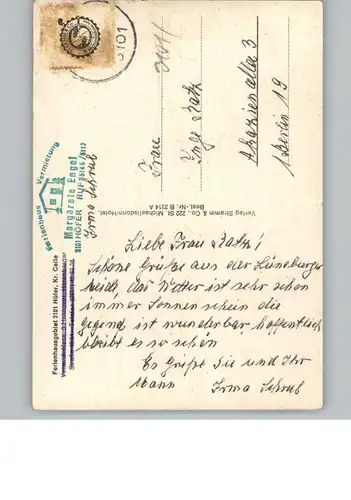 3101
Frau
Inge Ratz
Akazienallee 3
1 Berlin 19
Verlag Stramm & Co. 223 St. Michaelisdonn-Holst.
Best.-Nr. B 2314 A
Ferienhaus Vermietung
Margarete Engel
3101 HÖFER RUF
Irma Schrub
Ferienhausgebiet 3101 Höfer, Kr. Celle
Liebe Frau Ratz!
Schöne Grüße aus der Lüneburger
heide, das Wetter ist sehr schön
immer Sonnen schein die
Gegend ist wunderbar hoffentlich
bleibt es so schön
Es Grüßt Sie und Ihr
Mann Irma Schrub